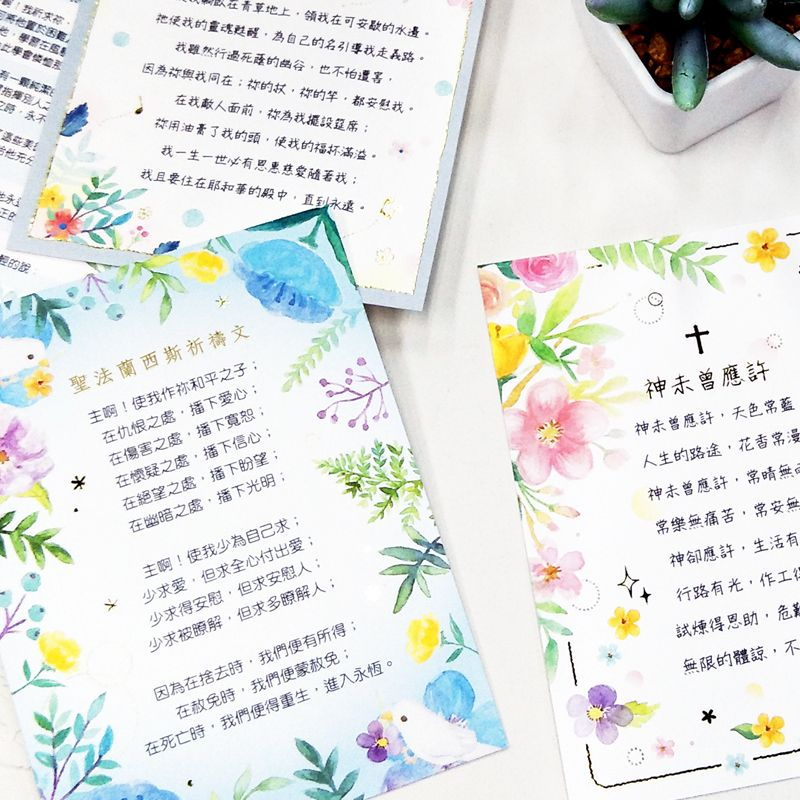 使我躺臥在青草地上，領我在可安歇的水邊。
祂使我的靈魂甦醒，為自己的名引導我走義路。
我雖然行過死蔭的幽谷，也不怕遭害，
因為祢與我同在；祢的杖，祢的竿，都安慰我。
在我敵人面前，祢為我擺設筵席；
祢用油膏了我的頭，使我的福杯滿溢。
我一生一世必有恩惠慈愛隨著我；
我且要住在耶和華的殿中，直到永遠。
聖法蘭西斯祈禱文
主啊！使我作祢和平之子；
在仇恨之處，播下愛心；
在傷害之處，播下寬恕；
在懷疑之處，播下信心；
在絕望之處，播下盼望；
在幽暗之處，播下光明；
主啊！使我少為自己求；
少求愛，但求全心付出愛；
少求得安慰，但求安慰人；
少求被瞭解，但求多瞭解人；
因為在捨去時，我們便有所得；
在赦免時，我們便蒙赦免；
在死亡時，我們便得重生，進入永恆。
神未曾應許
神未曾應許，天色常藍
人生的路途，花香常漫
神未曾應許，常晴無
常樂無痛苦，常安無
神卻應許，生活有
行路有光，作工得
試煉得恩助，危難
無限的體諒，不